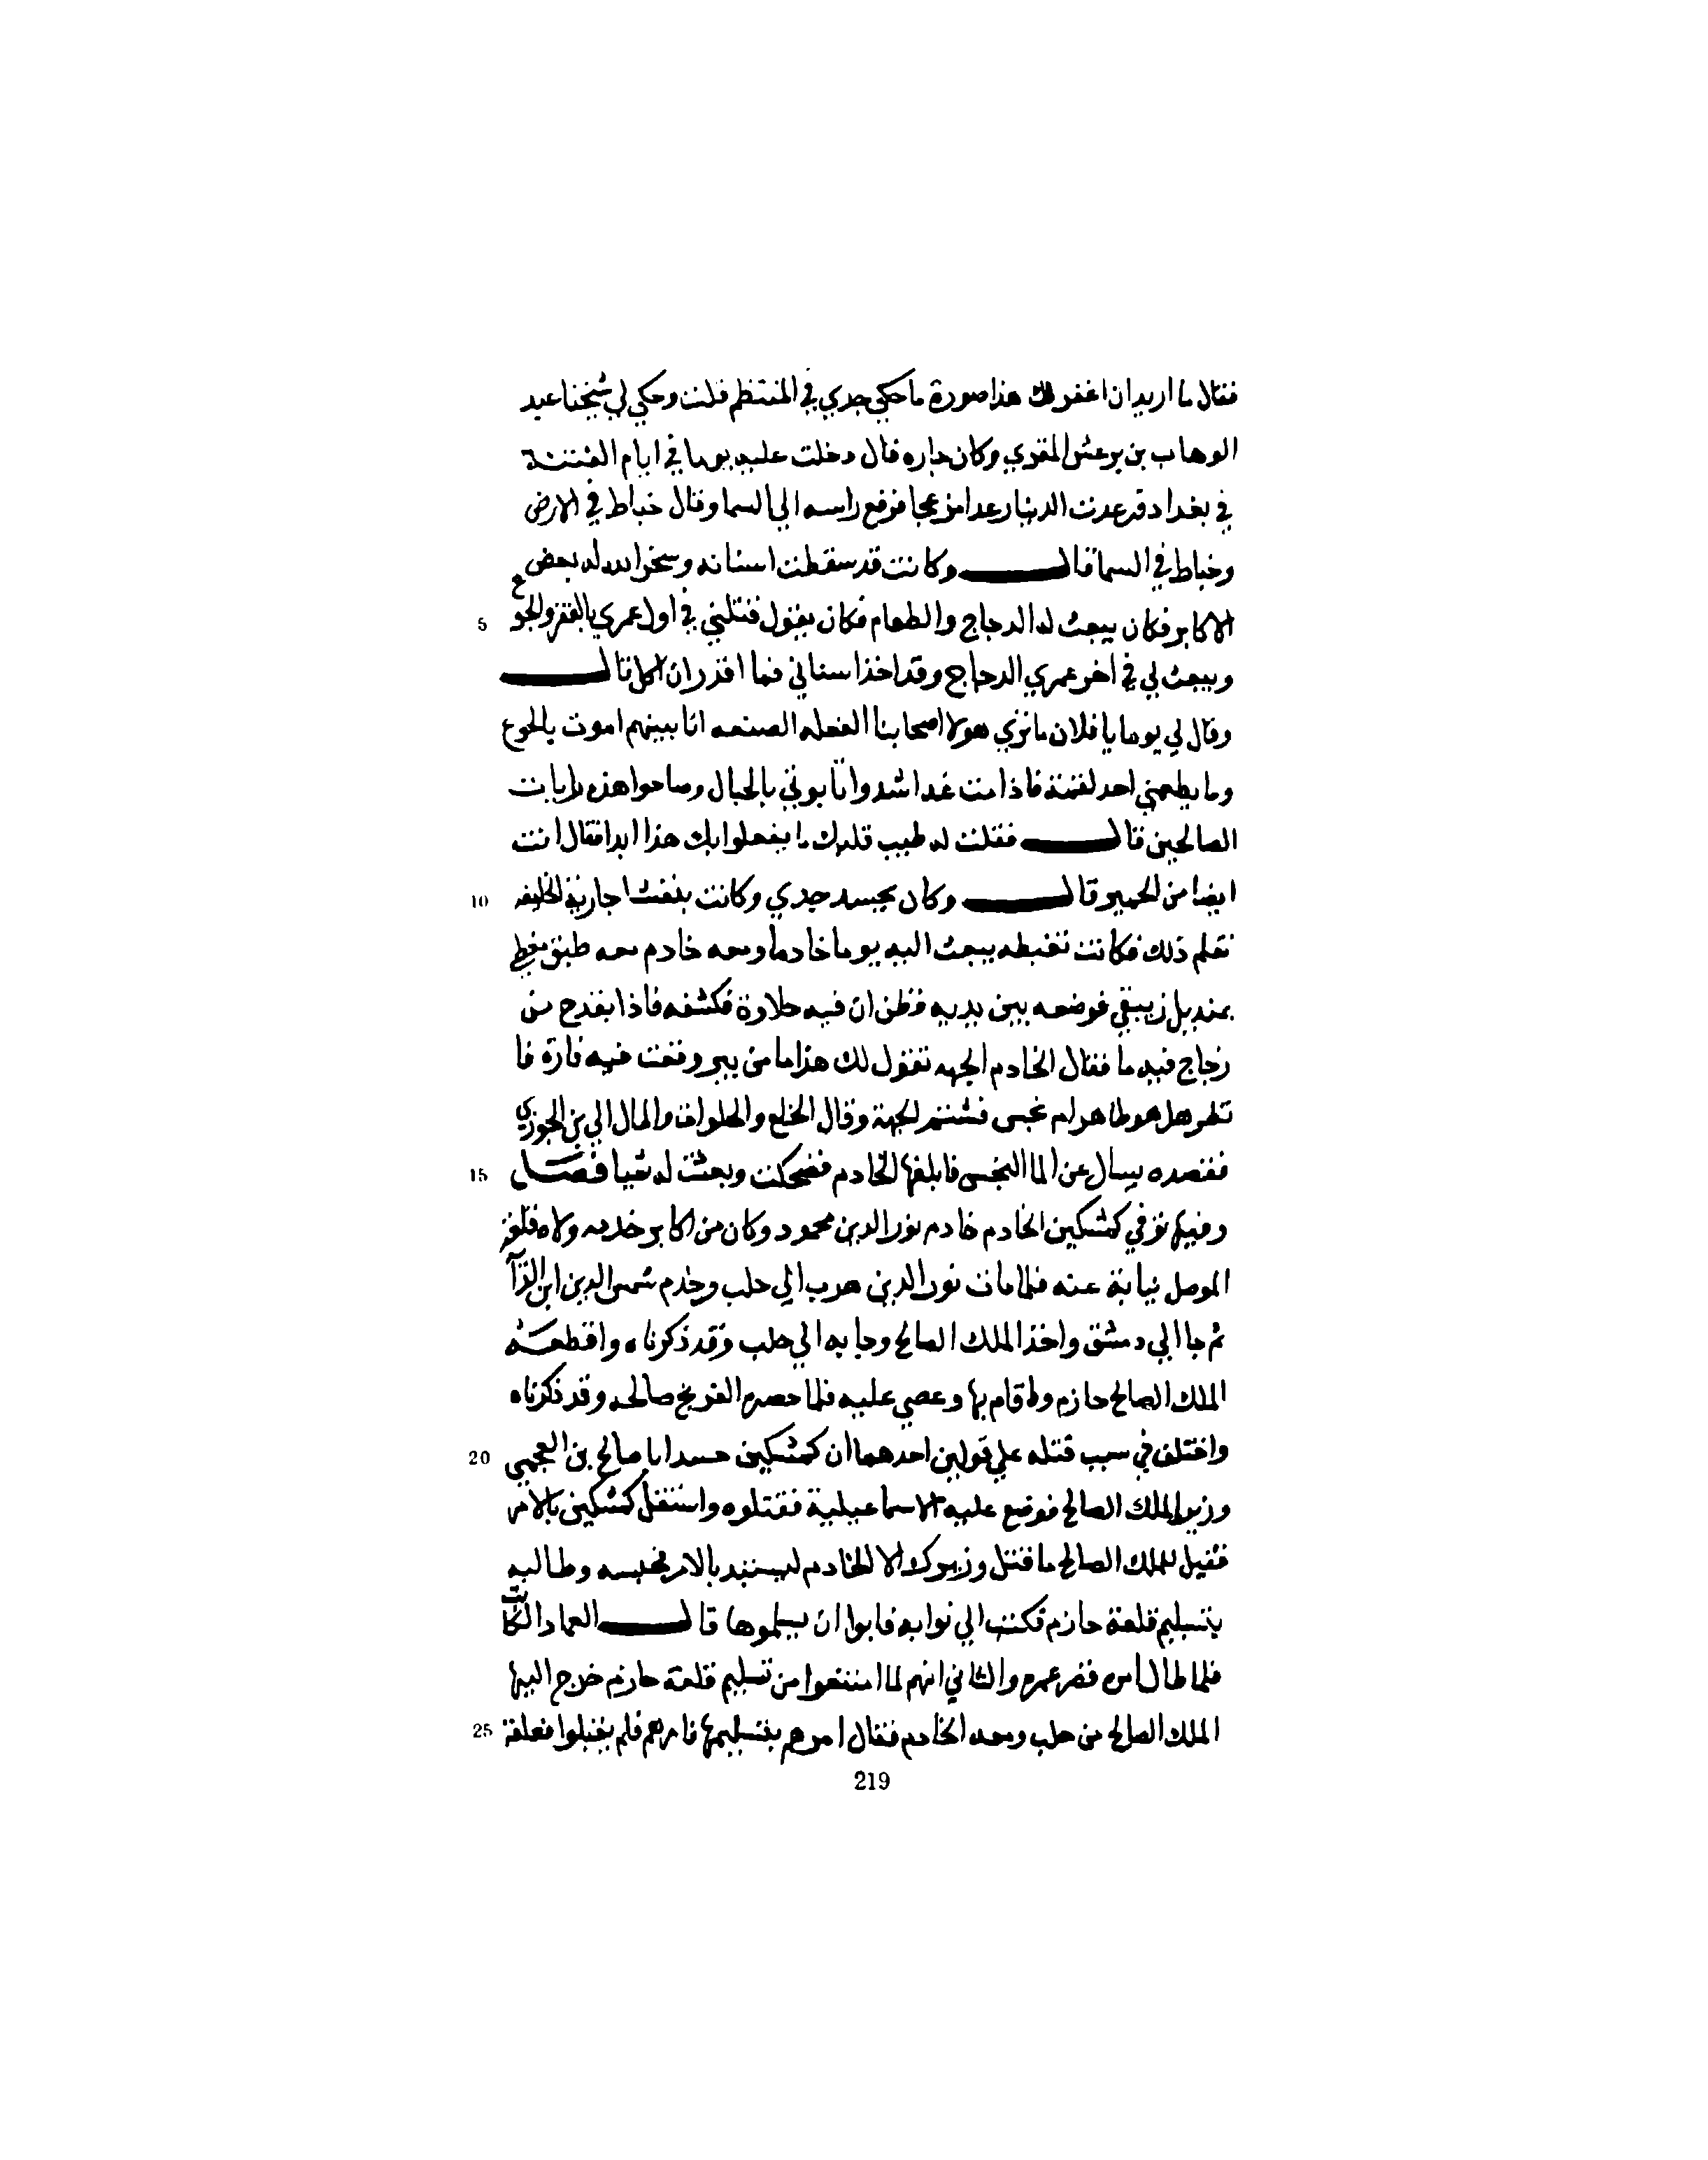 فقال ما اريد ان اغفر لك هذا صورة ما حكي جدي في المنتظم قلت وحكي لي شيخنا عبد
الوهاب بن برعش المقري وكان جاره قال دخلت عليه يوما في ايام الفتنة
في بغداد وقد رعدت الدنيا رعدا مزعجا فرفع راسه الي السما وقال خباط في الارض
وخباط في السما قال وكانت قد سقطت اسنانه وسخر الله له بعض
5 الاكابر فكان يبعث له الدجاج والطعام فكان يقول قتلني في اول عمري بالفقر والجوع
ويبعث لي في اخر عمري الدجاج وقد اخذ اسناني فما اقدر ان اكل قال
وقال لي يوما يا فلان ما تري هولا اصحابنا الفعله الصنعه انا بينهم اموت بالجوع
وما يطعمني احد لقمة فاذا مت غدا شدوا تابوتي بالحبال وصاحوا هذه رايات
الصالحين قال فقلت له طيب قلبك ما يفعلوا بك هذا ابدا فقال انت
10 ايضا من الحمير قال وكان يحسد جدي وكانت بنفشا جارية الخليفه
تعلم ذلك فكانت تغيظه يبعث اليه يوما خادما ومعه خادم معه طبق مغطي
بمنديل زيبقي فوضعه بين يديه فظن ان فيه حلاوة فكشفه فاذا بقدح من
زجاج فيه ما فقال الخادم الجهه تقول لك هذا ما من بير وقعت فيه فارة فا
نظر هل هو طاهر ام نجس فشتم الجهة وقال الخلع والحلوات والمال الي بن الجوزي
15 فقصده يسال عن الما النجس فابلغها الخادم فضحكت وبعثت له شيا فصل
وفيها توفي كمشكين الخادم خادم نور الدين محمود وكان من اكابر خدمه ولاه قلعة
الموصل نيابة عنه فلما مات نور الدين هرب الي حلب وخدم شمس الدين ابن الدآ
ثم جا الي دمشق واخذ الملك الصالح وجا به الي حلب وقد ذكرناه واقطعه
الملك الصالح حازم واقام بها وعصي عليه فلما حصره الفرنج صالحه وقد ذكرناه
20 واختلف في سبب قتله علي قولين احدهما ان كمشكين حسد ابا صالح بن العجمي
وزير الملك الصالح فوضع عليه الاسماعيلية فقتلوه واستقل كمشكين بالامر
فقيل للملك الصالح ما قتل وزيرك الا الخادم ليستبد بالامر فحبسه وطالبه
بتسليم قلعة حازم فكتب الي نوابه فابوا ان يسلموها قال العماد الكاتب
فلما طال امره قصر عمره والثاني انهم لما امتنعوا من تسليم قلعة حازم خرج اليها
25 الملك الصالح من حلب ومعه الخادم فقال امرهم بتسليمها فامرهم فلم يقبلوا فعلقة
219